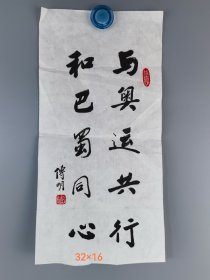 与奥运共行
和巴蜀同心
傅明
32×16